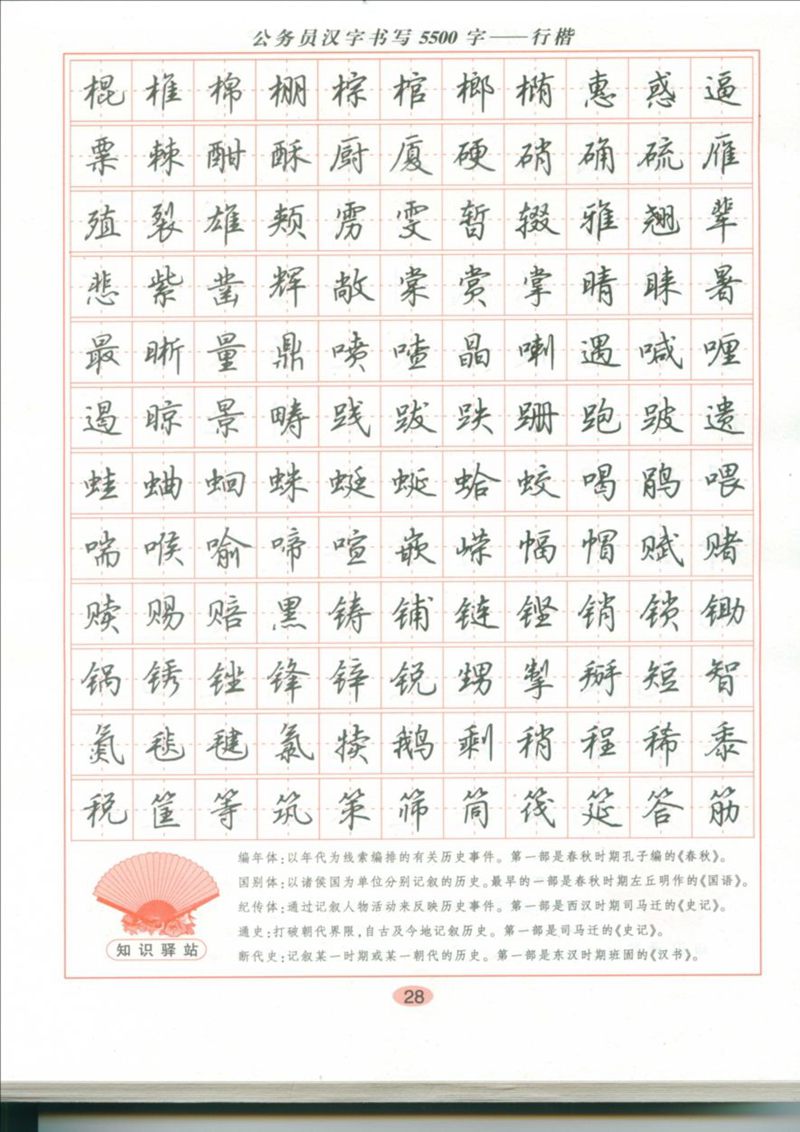 公务员汉字书写5500字——行楷
棍椎棉棚棕棺榔椭惠惑逼
粟棘酣酥厨厦硬硝确硫雁
殖裂雄颊雳雯暂辍雅翘辈
悲紫凿辉敞棠赏掌晴睐暑
最晰量鼎喷喳晶喇遇喊喱
遏晾景畴践跋跌跚跑跛遗
蛙蛐蛔蛛蜓蜒蛤蛟喝鹃喂
喘喉喻啼喧嵌嵘幅帽赋赌
赎赐赔黑铸铺链铿销锁锄
锅锈锉锋锌锐甥掣掰短智
氮毯毽氯犊鹅剩稍程稀黍
税筐等筑策筛筒筏筵答筋
编年体:以年代为线索编排的有关历史事件。第一部是春秋时期孔子编的《春秋》。
国别体:以诸侯国为单位分别记叙的历史。最早的一部是春秋时期左丘明作的《国语》。
纪传体:通过记叙人物活动来反映历史事件。第一部是西汉时期司马迁的《史记》。
通史:打破朝代界限,自古及今地记叙历史。第一部是司马迁的《史记》。
断代史:记叙某一时期或某一朝代的历史。第一部是东汉时期班固的《汉书》。
知识驿站
28